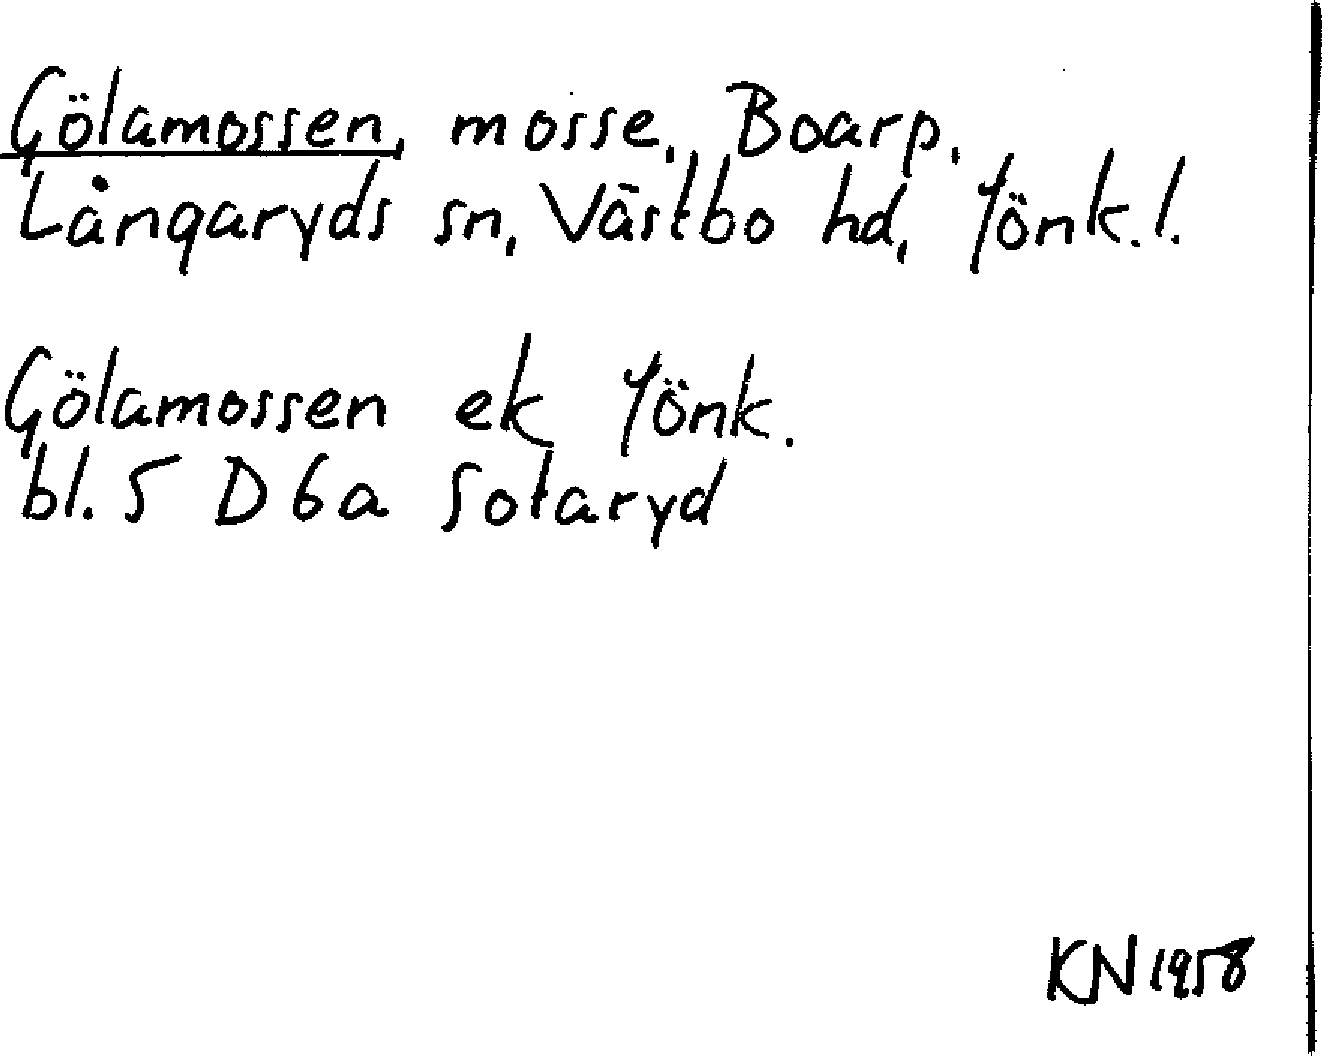 Gölamossen, mosse, Boarp,
Långaryds sn, Västbo hd, Jönk.l.
Gölamossen ek Jönk.
bl. 5 D 6a Sotaryd
KN 1958